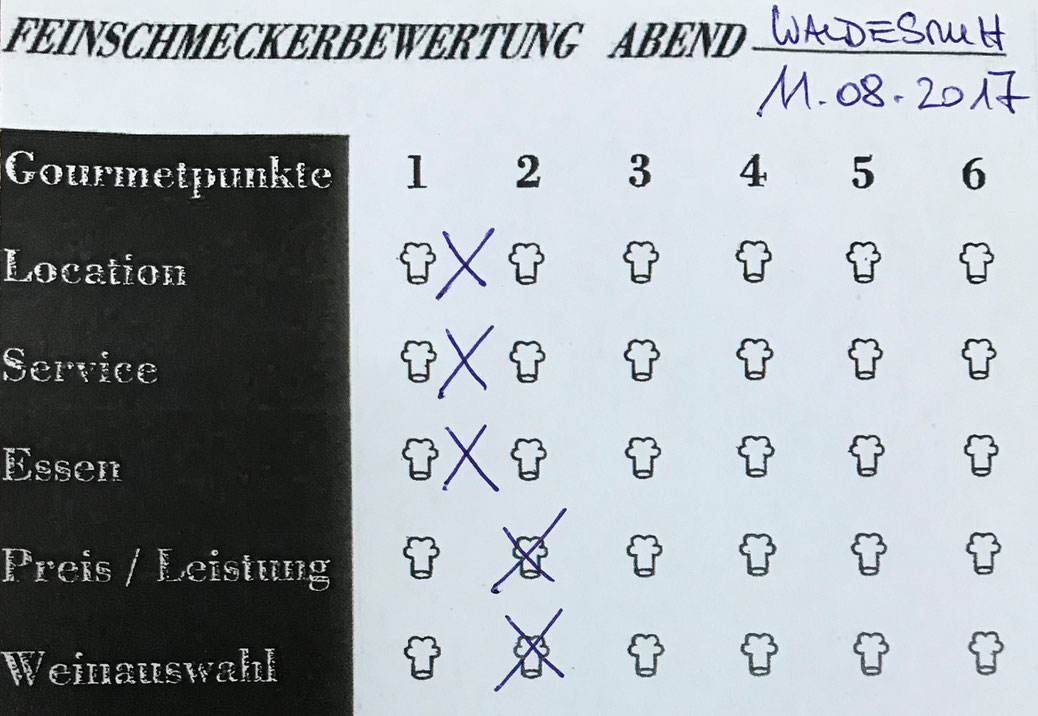 FEINSCHMECKERBEWERTUNG ABEND WALDESRUH
11.08.2017
Gourmetpunkte 1 2 3 4 5 6
Location
Service
Essen
Preis / Leistung
Weinauswahl